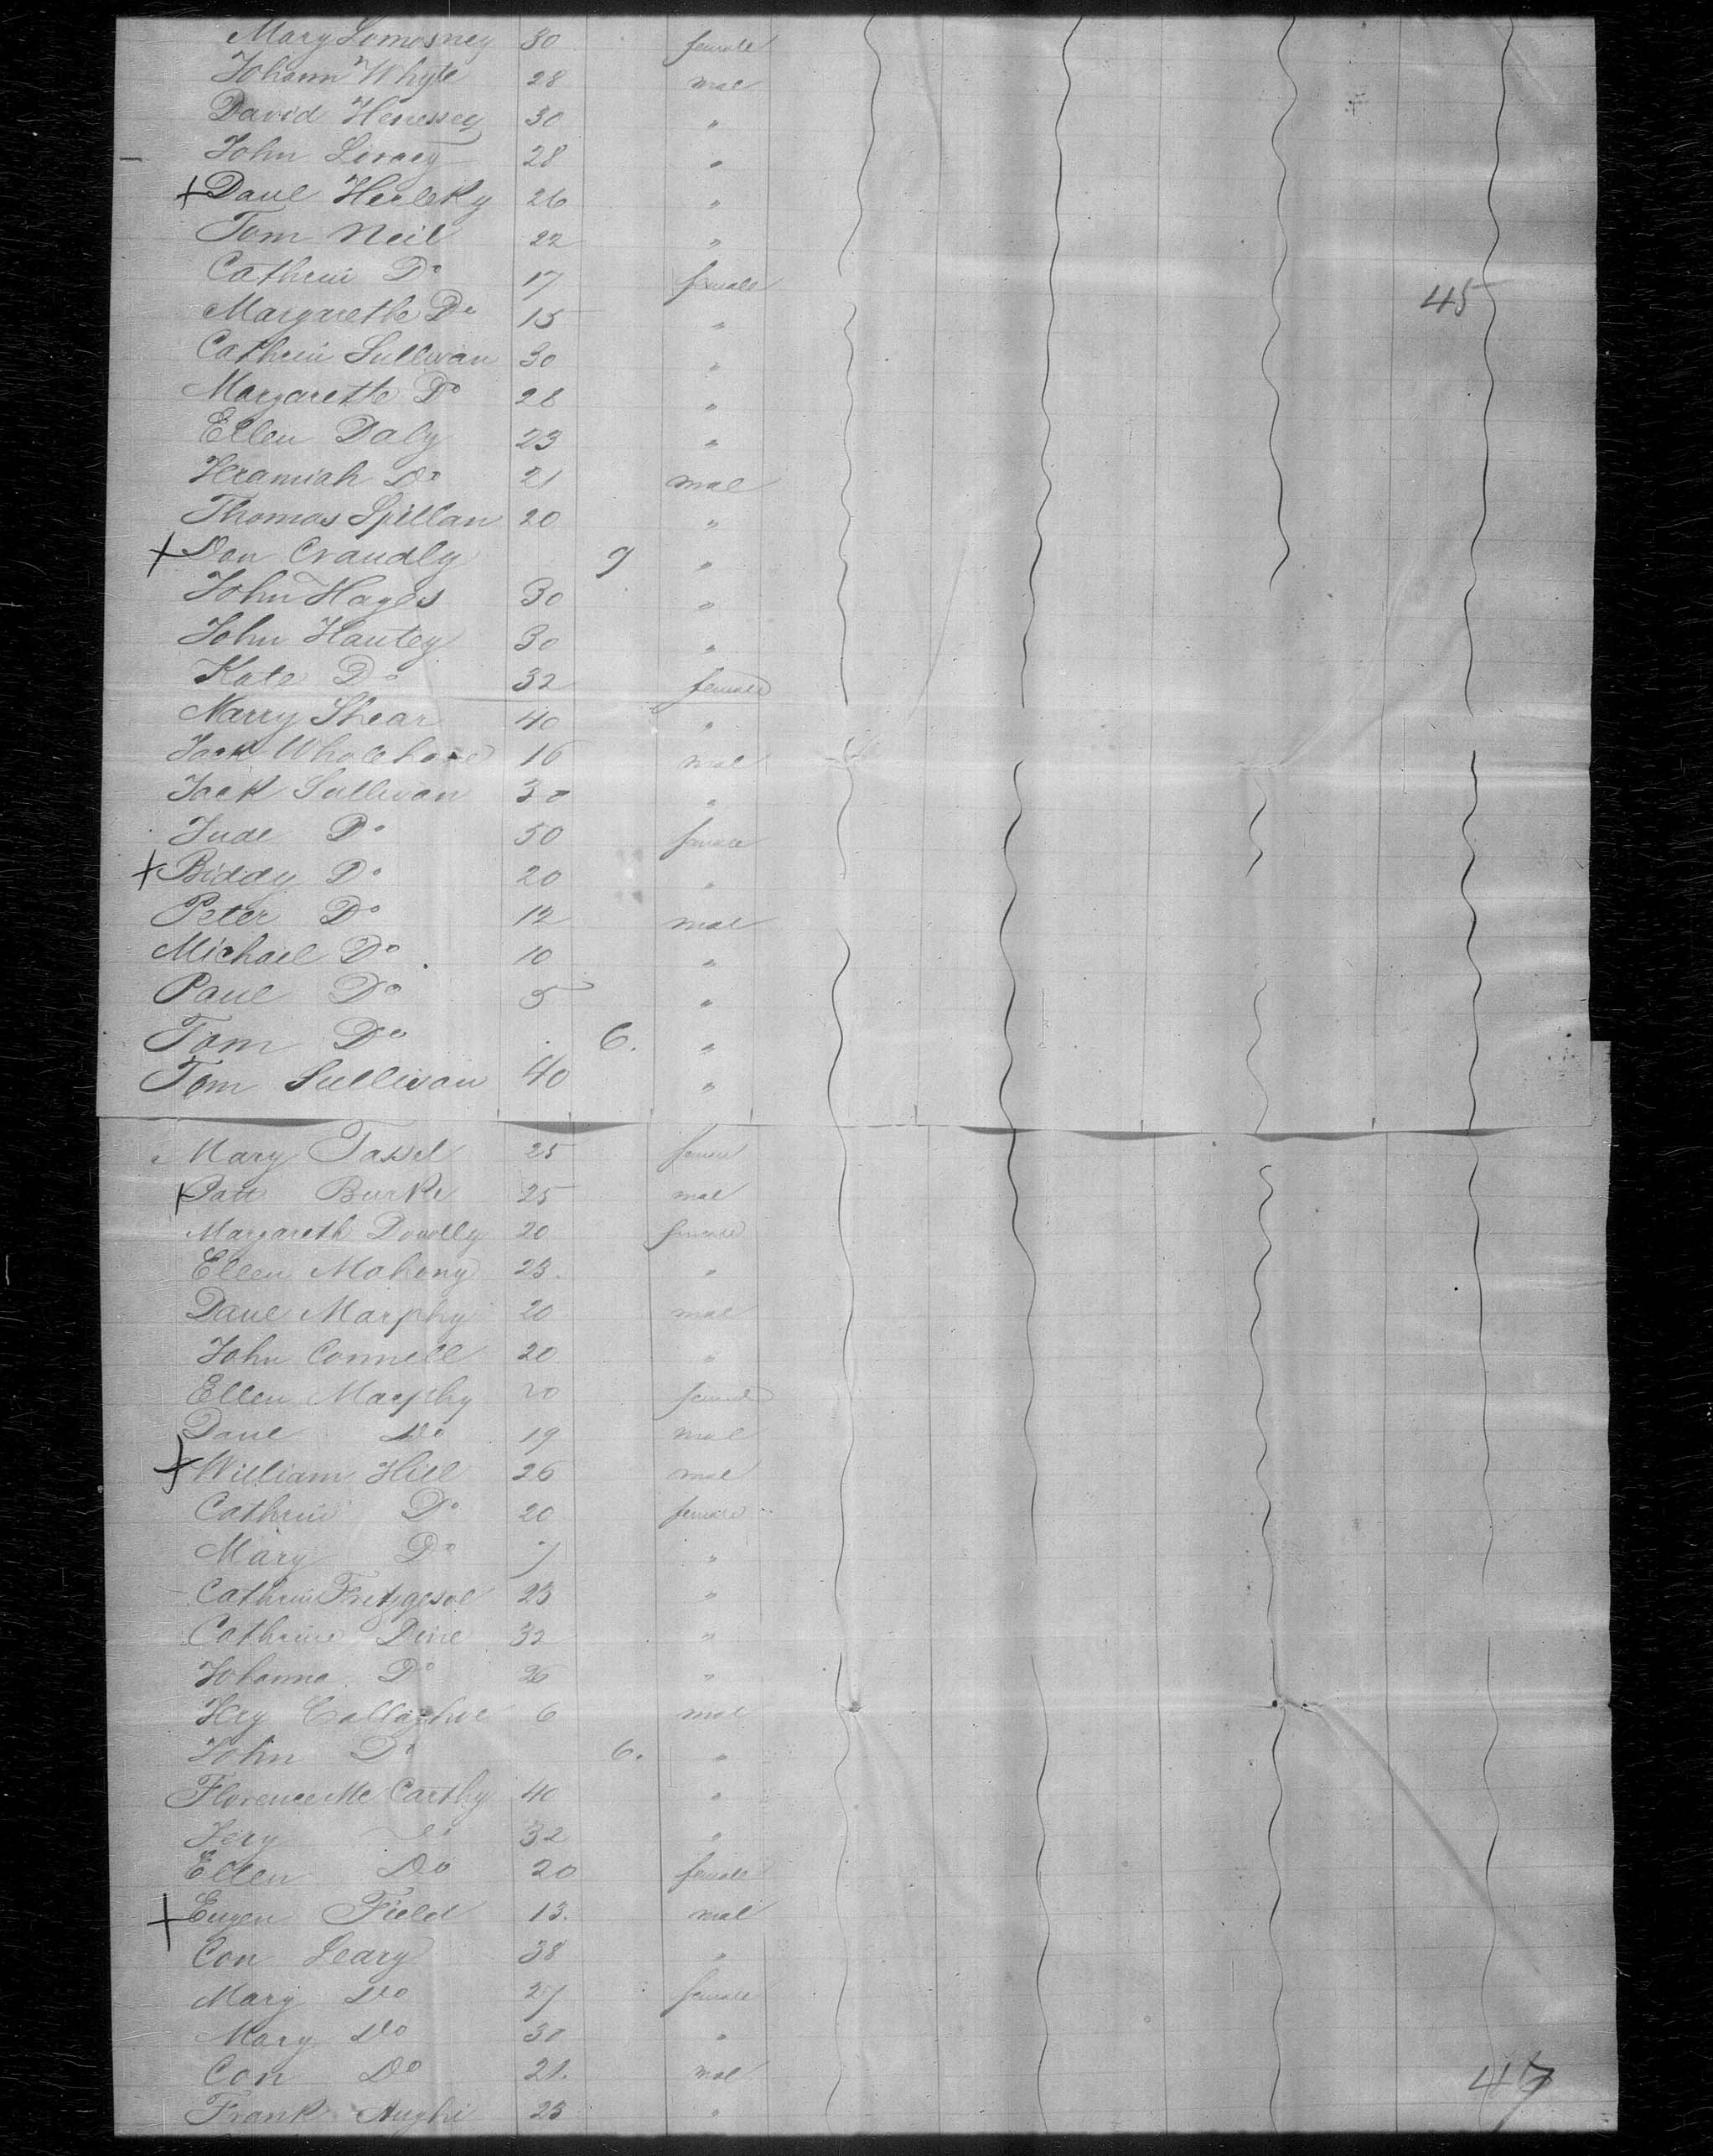 Mary Lomosney 30 female
Johann Whyte 28 mal
David Henessey 30 "
John 28 "
+ Danl Herleky 26 "
Tom Neil 22 "
Cathrin Do 17 female
45
Margareth Do 15 "
Cathrin Sullivan 30 "
Margareth Do 28 "
Ellen Daly 23 "
Jeramiah Do 21 mal
Thomas Spillan 20 "
+ Dan Craudly 9 "
John Hayes 30 "
John Hautey 30 "
Kate Do 32 female
Marry Shear 40 "
Jack 16 mal
Jack Sullivan 30 "
Jude Do 50 female
+ Biddy Do 20 "
Peter Do 12 mal
Michael Do 10 "
Paul Do 5 "
Tom Do 6. "
Tom Sullivan 40 "
Mary Tassel 25 female
+ Patt Burke 25 mal
Margareth Dowlly 20 female
Ellen Mahony 23. "
Danl Marphy 20 mal
John Connell 20 "
Ellen Marphy 20 female
Danl Do 19 mal
+ William Hill 26 mal
Cathrin Do 20 female
Mary Do 7 "
Cathrin Fritzgesol 23 "
Cathrine Dine 32 "
Johanna Do 26 "
Jery 6 mal
John Do 6. "
Florence Mc Carthy 40 "
Jery Do 32 "
Ellen Do 20 female
+ Eugen Field 13. mal
Con Leary 38 "
Mary Do 27 female
Mary Do 30 "
Con Do 21. mal
47
Frank Aughi 25 "